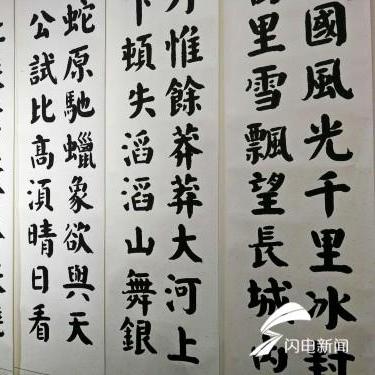 國風光千里冰封
里雪飄望長城內
外惟餘莽莽大河上
下頓失滔滔山舞銀
蛇原馳蠟象欲與天
公試比高湏晴日看
闪电新闻